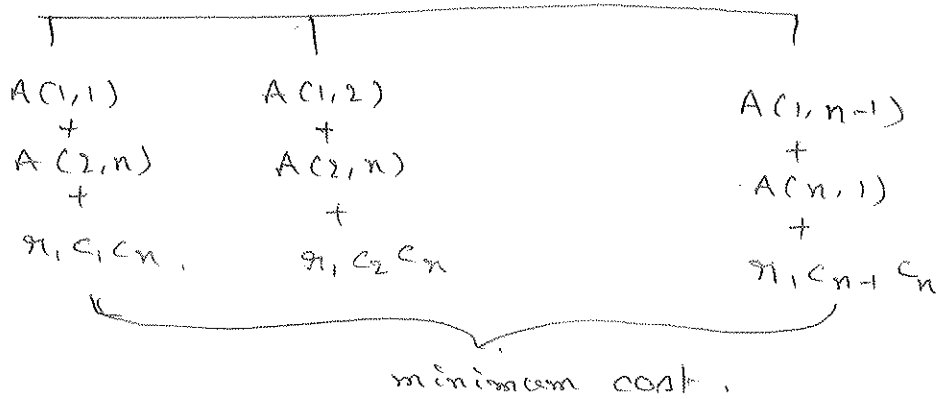 A(1,1)
+
A(2,n)
+
r₁ c₁ cₙ.
A(1,2)
+
A(2,n)
+
r₁ c₂ cₙ
A(1,n-1)
+
A(n,1)
+
r₁ cₙ₋₁ cₙ
minimum cost.